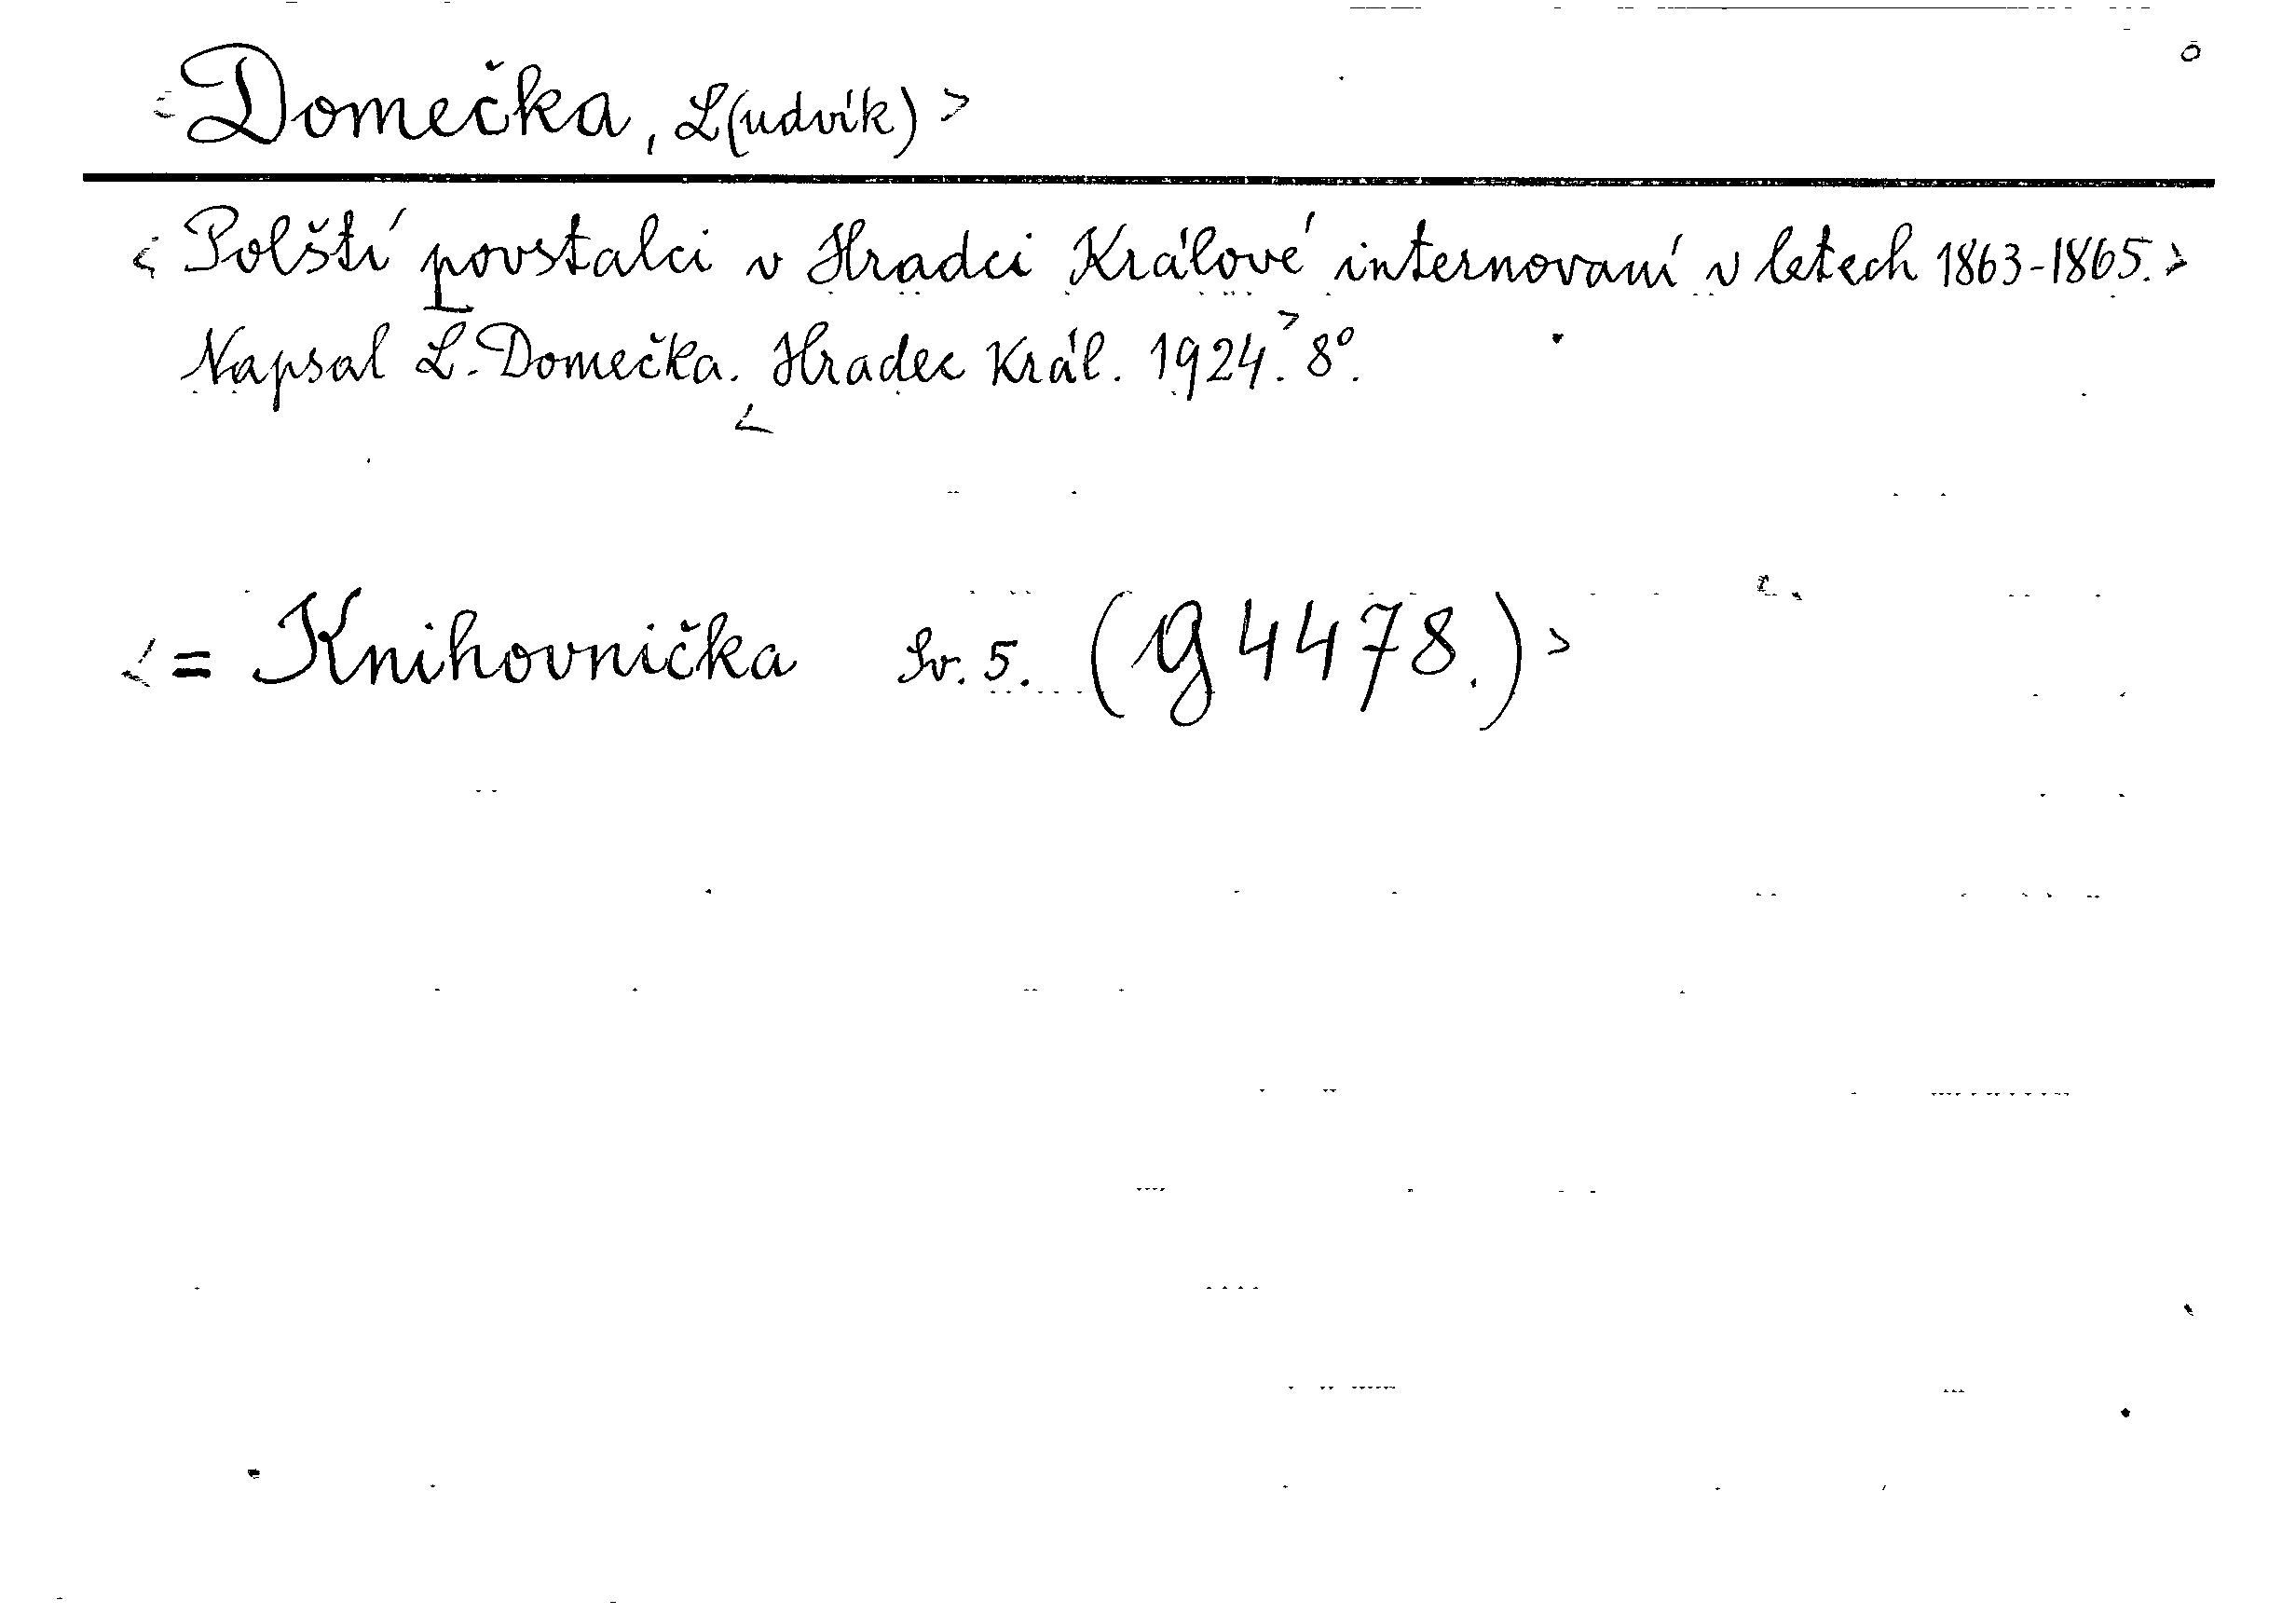 <Domečka, L(udvík)>
<Polští povstalci v Hradci Králové internovaní v letech 1863-1865.>
Napsal L. Domečka. <Hradec Král. 1924.> 8°.
<= Knihovnička Sv. 5. (g 4478.)>